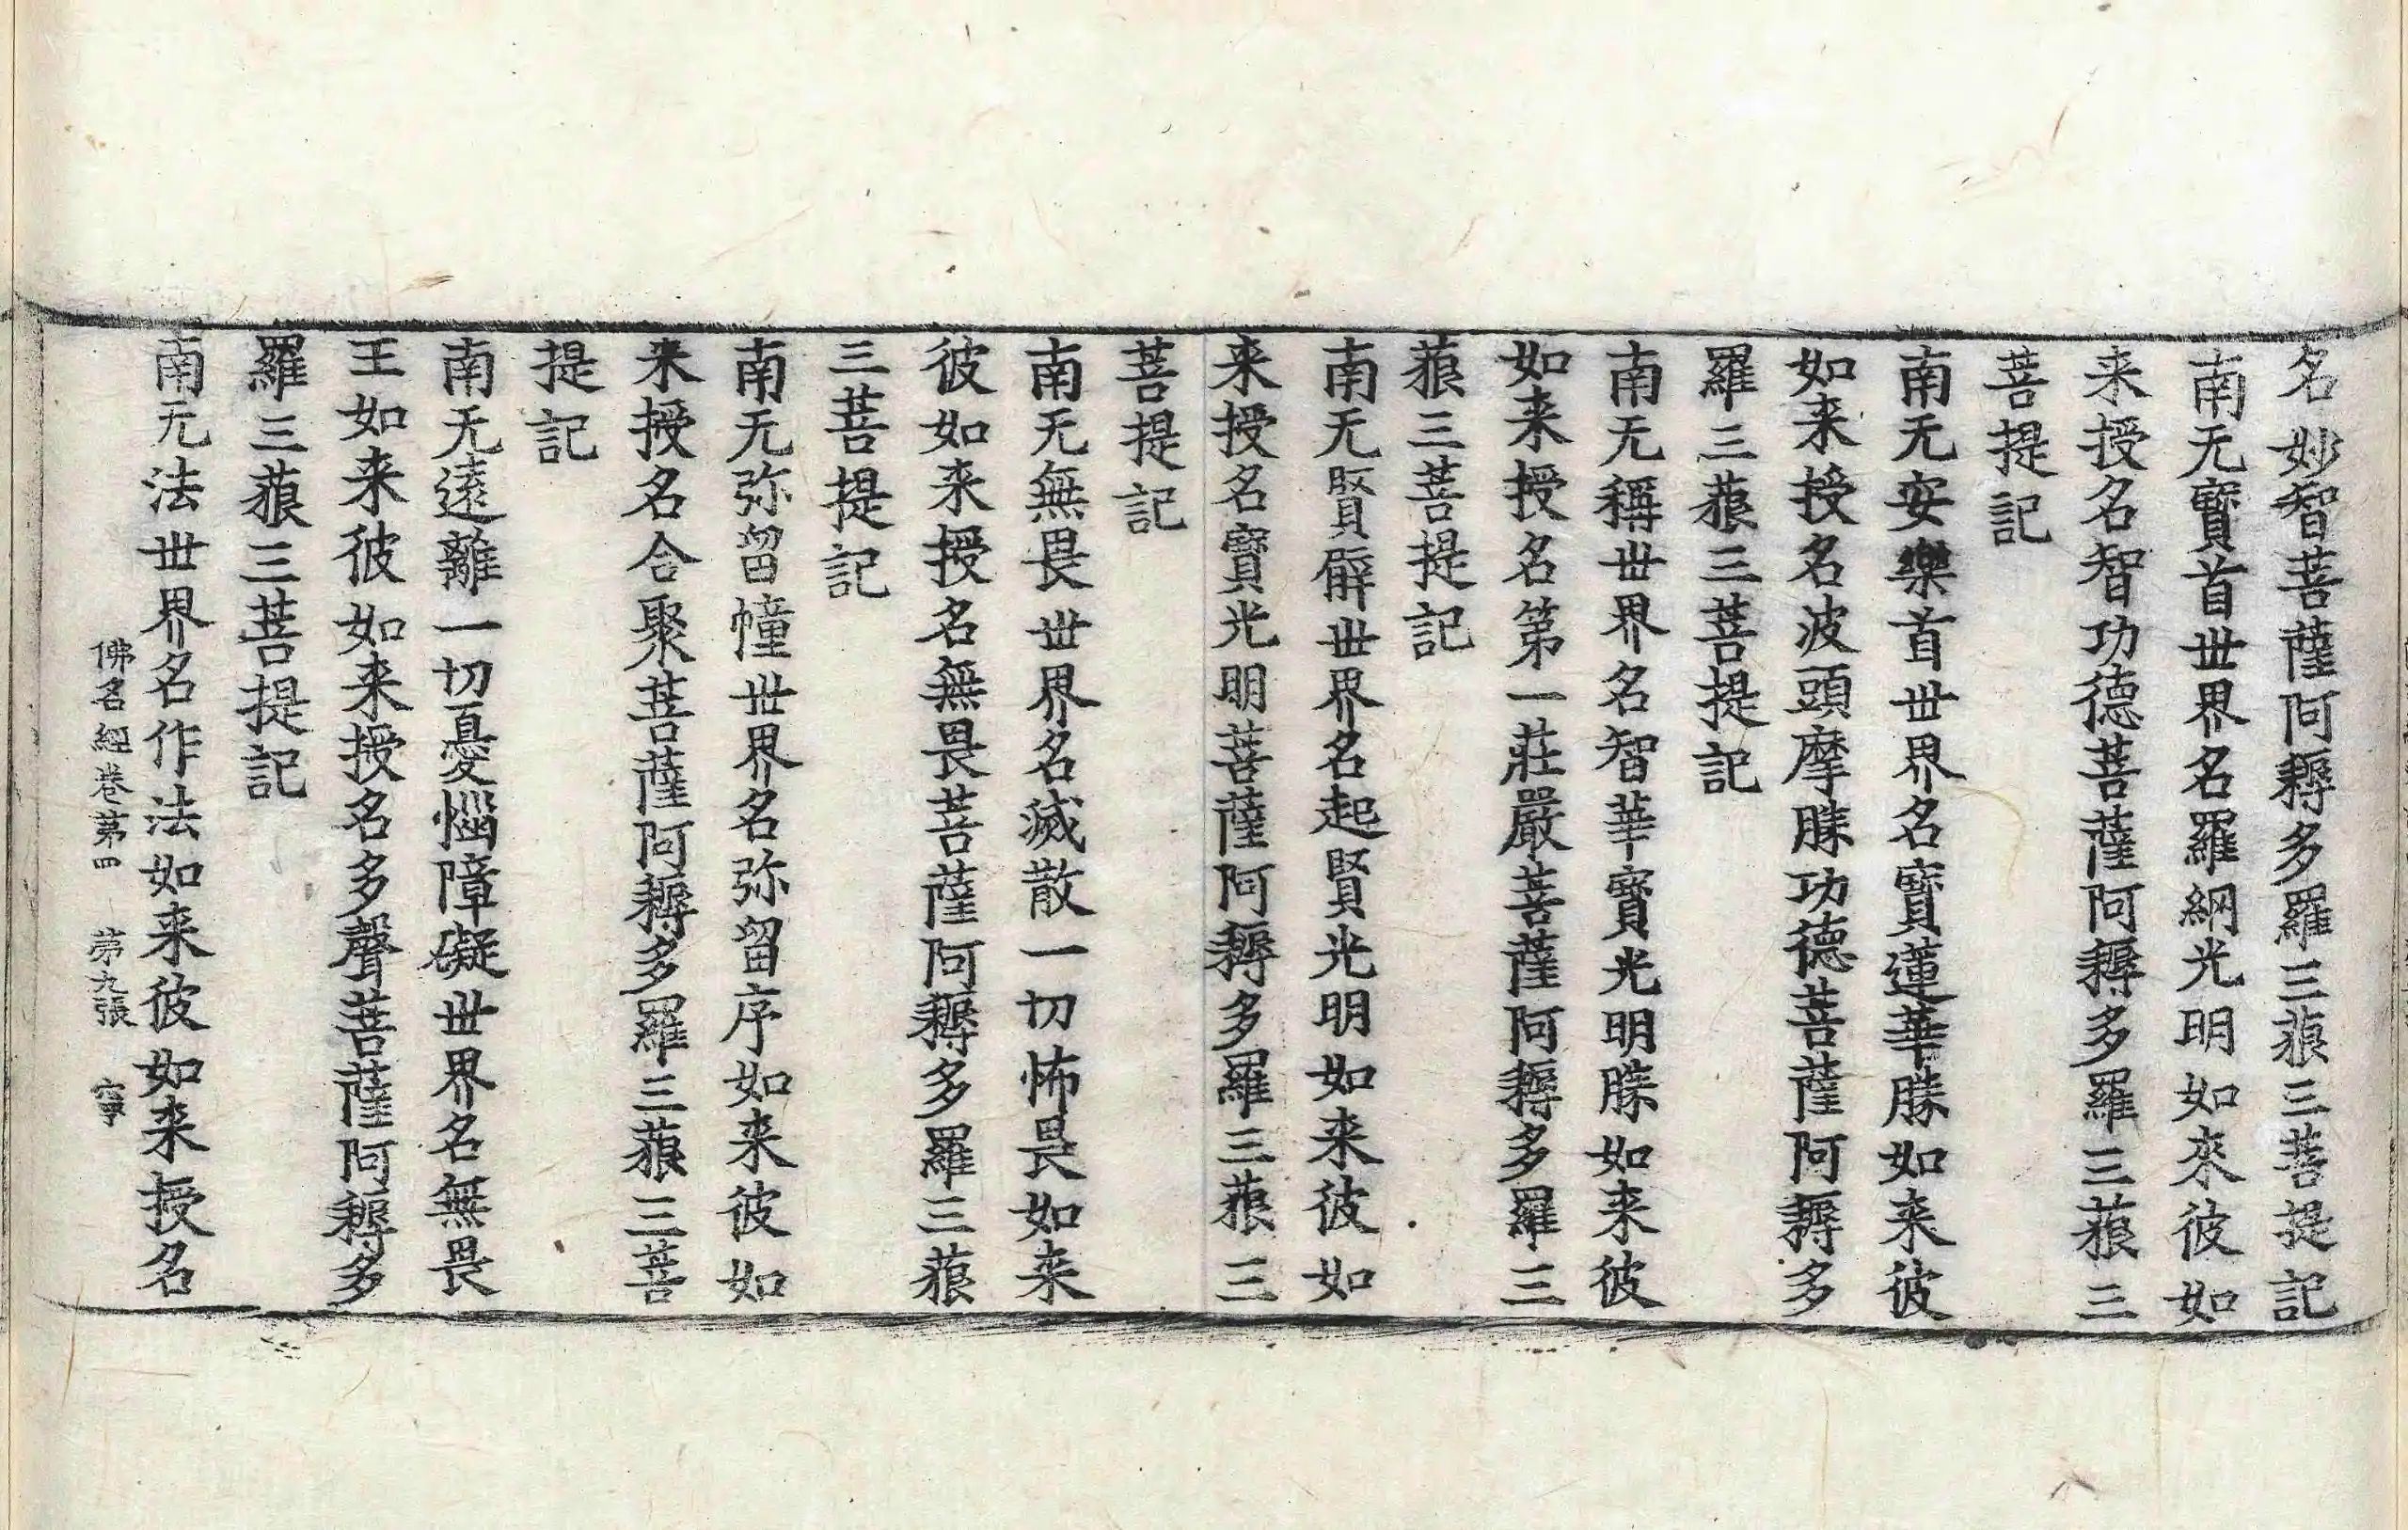 名妙智菩薩阿耨多羅三藐三菩提記
南无寳首世界名羅網光明如來彼如
来授名智功德菩薩阿耨多羅三藐三
菩提記
南无安樂首世界名寳蓮華勝如来彼
如来授名波頭摩勝功德菩薩阿耨多
羅三藐三菩提記
南无稱世界名智華寳光明勝如来彼
如来授名第一莊嚴菩薩阿耨多羅三
藐三菩提記
南无賢臂世界名起賢光明如来彼如
来授名寳光明菩薩阿耨多羅三藐三
菩提記
南无無畏世界名滅散一切怖畏如来
彼如来授名無畏菩薩阿耨多羅三藐
三菩提記
南无弥留幢世界名弥留序如来彼如
来授名合聚菩薩阿耨多羅三藐三菩
提記
南无遠離一切憂惱障礙世界名無畏
王如来彼如来授名多聲菩薩阿耨多
羅三藐三菩提記
南无法世界名作法如来彼如来授名
佛名經卷第四 第九張 寧